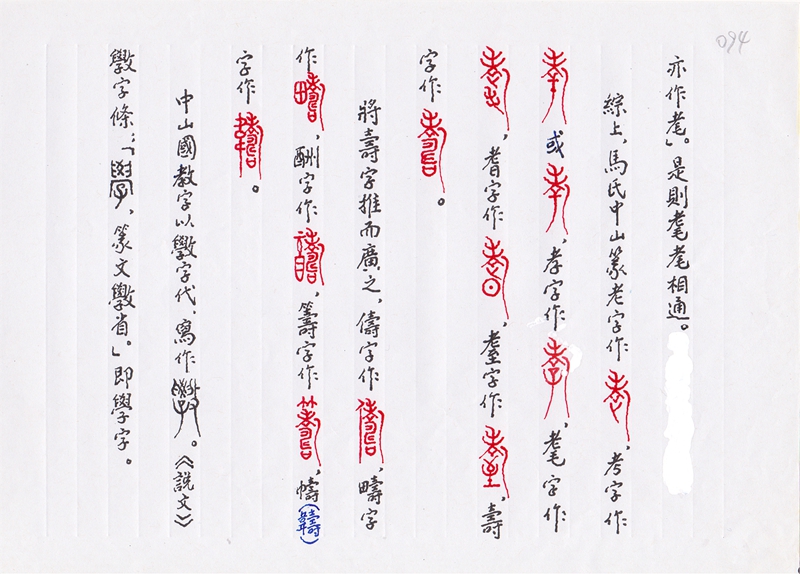 094
亦作耄」。是則耄耄相通。
綜上、馬氏中山篆老字作老，考字作
考或考，孝字作孝，耄字作
耄，耆字作耆，耋字作耋，壽
字作壽。
將壽字推而廣之，儔字作儔，疇字
作疇，酬字作譸，籌字作籌，幬(幬)
字作幬。
中山國教字以斆字代、寫作斆。《說文》
斆字條：「學，篆文斆省。」即學字。